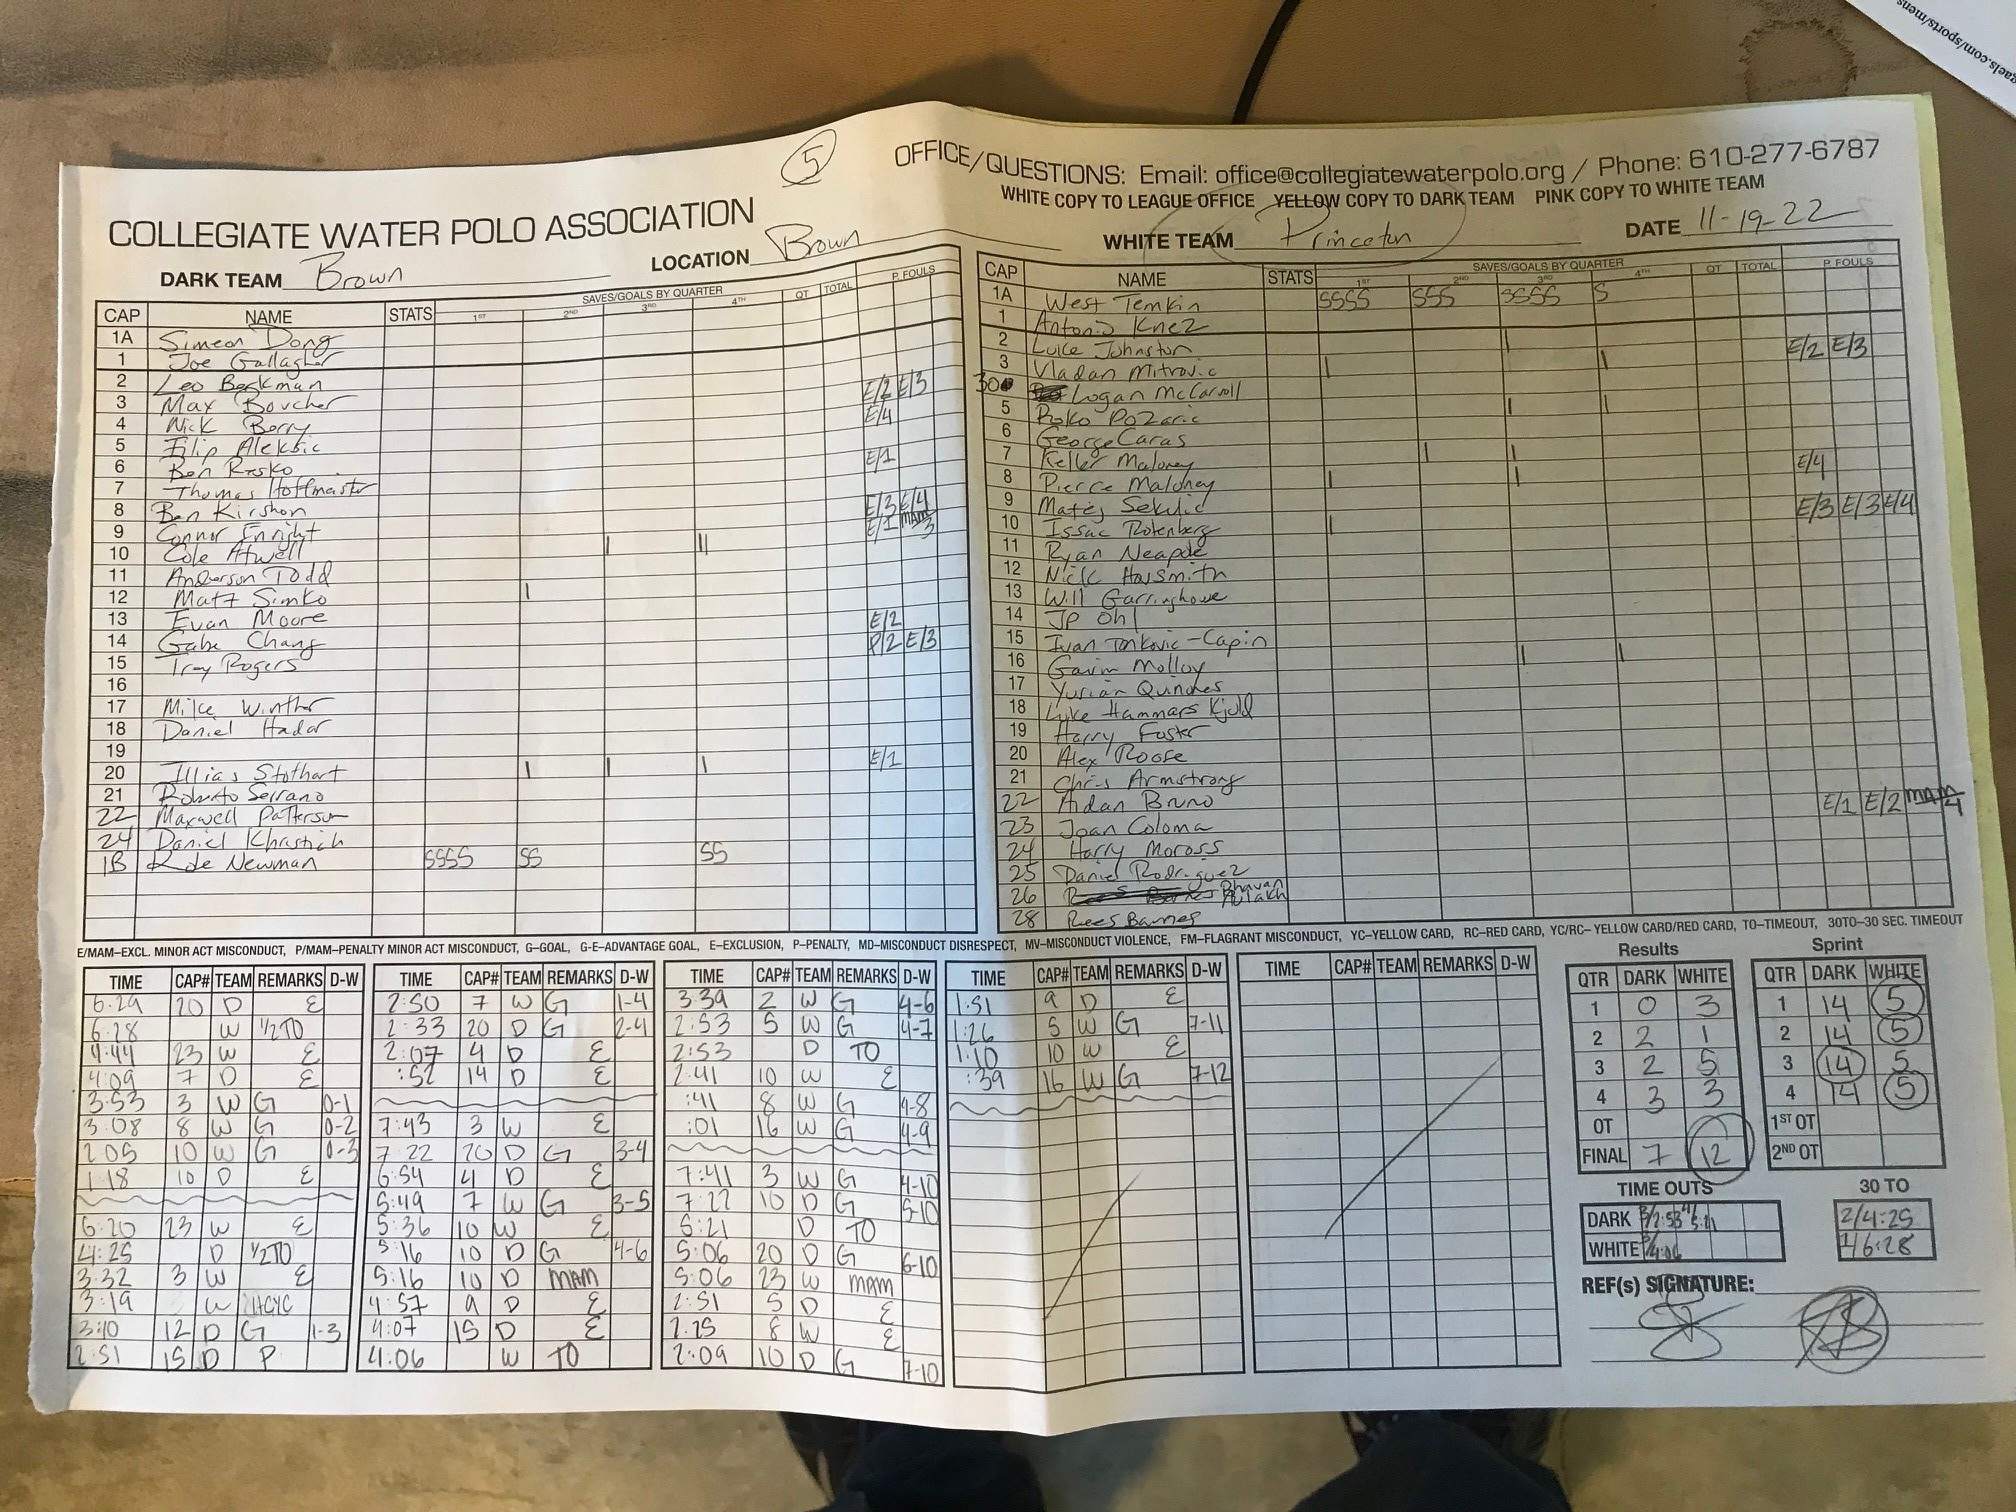 gaels.com/sports/mens
5
OFFICE/QUESTIONS: Email: office@collegiatewaterpolo.org / Phone: 610-277-6787
WHITE COPY TO LEAGUE OFFICE YELLOW COPY TO DARK TEAM PINK COPY TO WHITE TEAM
COLLEGIATE WATER POLO ASSOCIATION
DARK TEAM Brown LOCATION Brown
WHITE TEAM Princeton DATE 11-19-22
CAP NAME STATS SAVES/GOALS BY QUARTER 1ST 2ND 3RD 4TH OT TOTAL P. FOULS
1A Simeon Dong
1 Joe Gallagher
2 Leo Beckman E/2 E/3
3 Max Boucher E/4
4 Nick Berry
5 Filip Aleksic E/1
6 Ben Rasko
7 Thomas Hoffmaister E/3 E/4
8 Ben Kirshon E/1 MAM/3
9 Connor Enright
10 Cole Atwell
11 Anderson Todd
12 Matt Simko
13 Evan Moore E/2
14 Gabe Chang P/2 E/3
15 Troy Rogers
16
17 Mike Winther
18 Daniel Hadar
19
20 Illias Stothart E/1
21 Roberto Serrano
22 Maxwell Patterson
24 Daniel Khrastich
1B Newman SSSS SS SS
CAP NAME STATS SAVES/GOALS BY QUARTER 1ST 2ND 3RD 4TH OT TOTAL P. FOULS
1A West Temkin SSSS SSS SSSS S
1 Antonio Knez
2 Luke Johnston E/2 E/3
3 Vladan Mitrovic
30 Logan McCarroll
5 Roko Pozaric
6 George Caras
7 Keller Maloney E/4
8 Pierce Maloney
9 Matej Sekulic E/3 E/3 E/4
10 Issac Rotenberg
11 Ryan Neapole
12 Nick Horsmith
13 Will Garringhowe
14 JP Ohl
15 Ivan Tonkovic-Capin
16 Gavin Molloy
17 Yurian Quinones
18 Luke Hammarskjold
19 Harry Foster
20 Alex Roose
21 Chris Armstrong
22 Aidan Bruno E/1 E/2 MAM/4
23 Joan Coloma
24 Harry Moross
25 Daniel Rodriguez
26 Bhavan Aulakh
28 Rees Barnes
E/MAM–EXCL. MINOR ACT MISCONDUCT, P/MAM–PENALTY MINOR ACT MISCONDUCT, G–GOAL, G-E–ADVANTAGE GOAL, E–EXCLUSION, P–PENALTY, MD–MISCONDUCT DISRESPECT, MV–MISCONDUCT VIOLENCE, FM–FLAGRANT MISCONDUCT, YC–YELLOW CARD, RC–RED CARD, YC/RC–YELLOW CARD/RED CARD, TO–TIMEOUT, 30TO–30 SEC. TIMEOUT
TIME CAP# TEAM REMARKS D-W
6:29 20 D E
6:28 W 1/2TO
4:44 23 W E
4:09 7 D E
3:53 3 W G 0-1
3:08 8 W G 0-2
2:05 10 W G 0-3
1:18 10 D E
6:20 23 W E
4:25 D 1/2TO
3:32 3 W E
3:19 W HCYC
3:10 12 D G 1-3
2:51 15 D P
TIME CAP# TEAM REMARKS D-W
2:50 7 W G 1-4
2:33 20 D G 2-4
2:07 4 D E
:52 14 D E
7:43 3 W E
7:22 20 D G 3-4
6:54 4 D E
5:49 7 W G 3-5
5:36 10 W E
5:16 10 D G 4-6
5:16 10 D MAM
4:57 9 D E
4:07 15 D E
4:06 W TO
TIME CAP# TEAM REMARKS D-W
3:39 2 W G 4-6
2:53 5 W G 4-7
2:53 D TO
2:41 10 W E
:41 8 W G 4-8
:01 16 W G 4-9
7:41 3 W G 4-10
7:22 10 D G 5-10
5:21 D TO
5:06 20 D G 6-10
5:06 23 W MAM
2:51 5 D E
2:25 8 W E
2:09 10 D G 7-10
TIME CAP# TEAM REMARKS D-W
1:51 9 D E
1:26 5 W G 7-11
1:10 10 W E
:39 16 W G 7-12
TIME CAP# TEAM REMARKS D-W
Results
QTR DARK WHITE
1 0 3
2 2 1
3 2 5
4 3 3
OT
FINAL 7 12
Sprint
QTR DARK WHITE
1 14 5
2 14 5
3 14 5
4 14 5
1ST OT
2ND OT
TIME OUTS
DARK 3/2:53 4/5:21
WHITE 3/4:06
30 TO
2/4:25
1/6:28
REF(s) SIGNATURE: